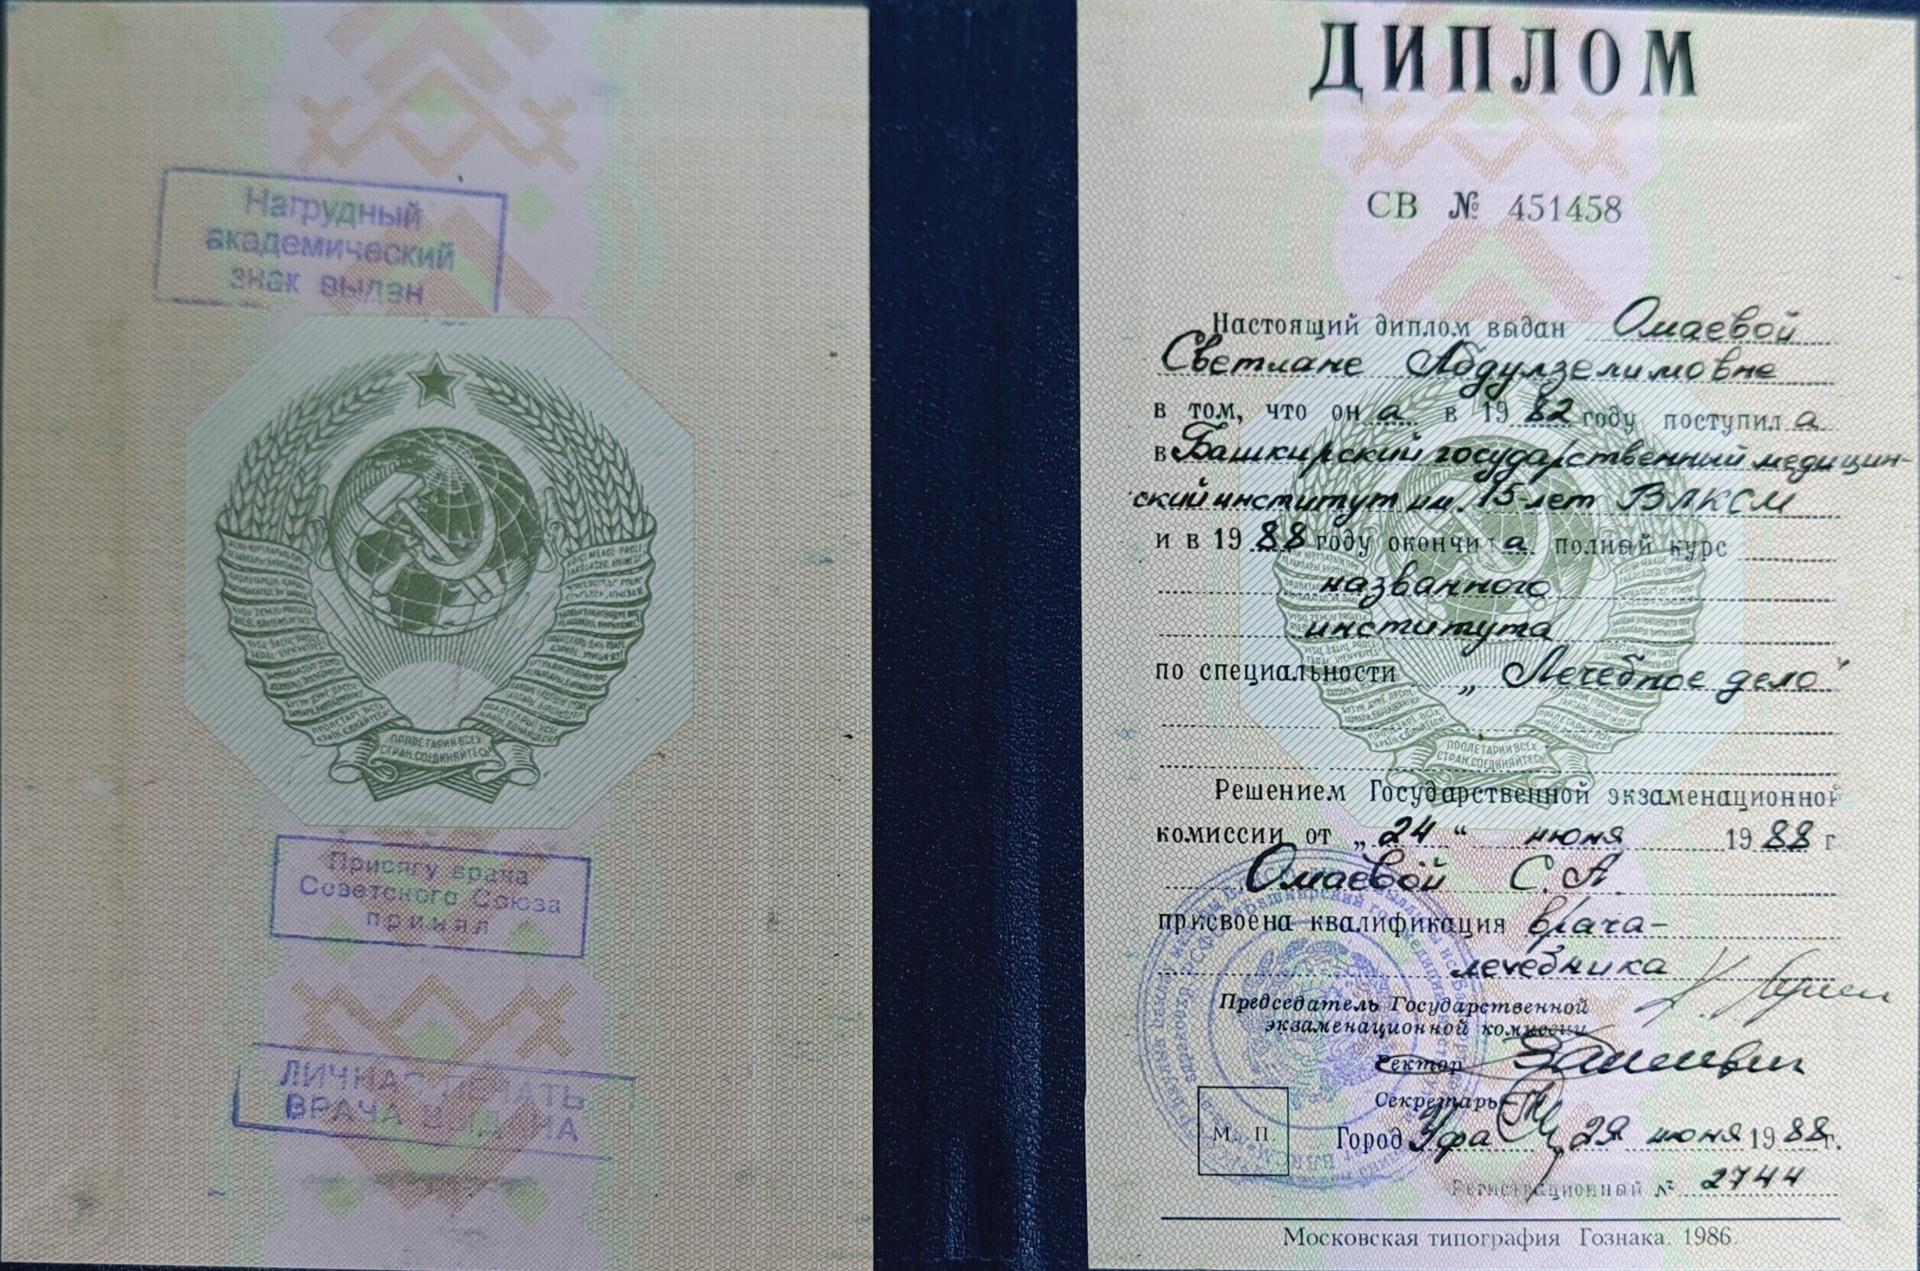 Нагрудный
академический
знак выдан
ПРОЛЕТАРИИ ВСЕХ
СТРАН, СОЕДИНЯЙТЕСЬ!
Присягу врача
Советского Союза
принял
ЛИЧНАЯ ПЕЧАТЬ
ВРАЧА ВЫДАНА
ДИПЛОМ
СВ № 451458
Настоящий диплом выдан Омаевой
Светлане Абдулзелимовне
в том, что он а в 19 82 году поступил а
в Башкирский государственный медицин-
ский институт им. 15-лет ВЛКСМ
и в 19 88 году окончил а полный курс
названного
института
по специальности „Лечебное дело"
ПРОЛЕТАРИИ ВСЕХ
СТРАН, СОЕДИНЯЙТЕСЬ!
Решением Государственной экзаменационной
комиссии от „ 24 “ июня 19 88 г
Омаевой С. А.
присвоена квалификация врача-
лечебника
Председатель Государственной
экзаменационной комиссии
Ректор
Секретарь
М. П.
Город Уфа 29 июня 19 88 г.
Регистрационный № 2744
Московская типография Гознака. 1986.